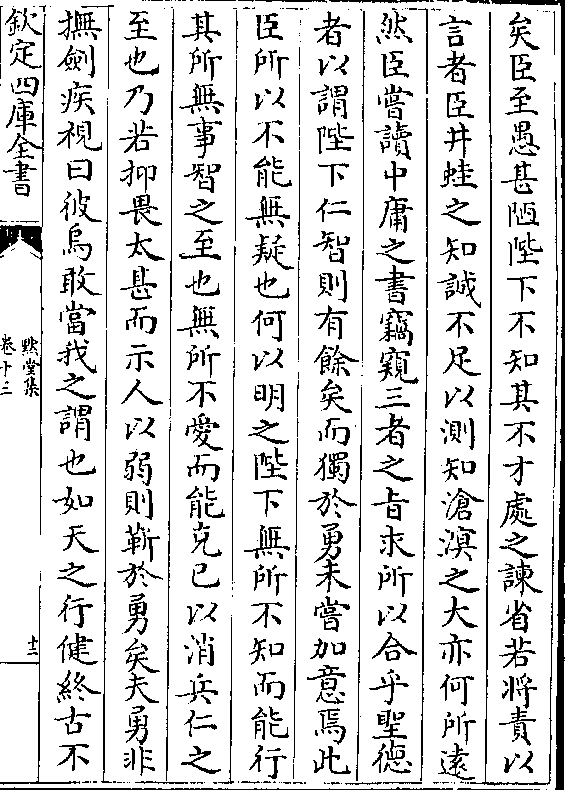 矣臣至愚甚陋陛下不知其不才處之諫省若將責以
言者臣井蛙之知誠不足以測知滄溟之大亦何所逺
然臣嘗讀中庸之書竊窺三者之旨求所以合乎聖德
者以謂陛下仁智則有餘矣而獨於勇未嘗加意焉此
臣所以不能無疑也何以明之陛下無所不知而能行
其所無事智之至也無所不愛而能克已以消兵仁之
至也乃若抑畏太甚而示人以弱則靳於勇矣夫勇非
撫劍疾視曰彼烏敢當我之謂也如天之行健終古不
欽定四庫全書
默堂集
卷十三
十三